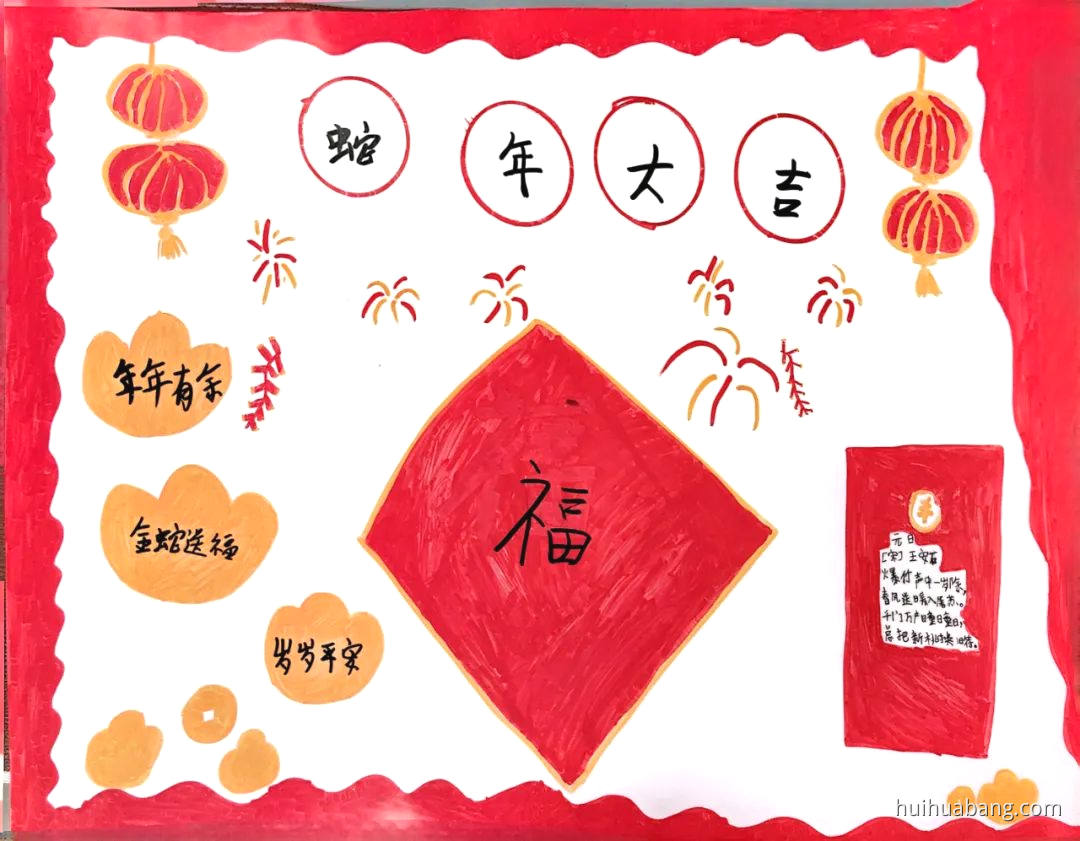 蛇年大吉
年年有余
金蛇送福
岁岁平安
福
元日
[宋] 王安石
爆竹声中一岁除,
春风送暖入屠苏。
千门万户曈曈日,
总把新桃换旧符。
huihuabang.com